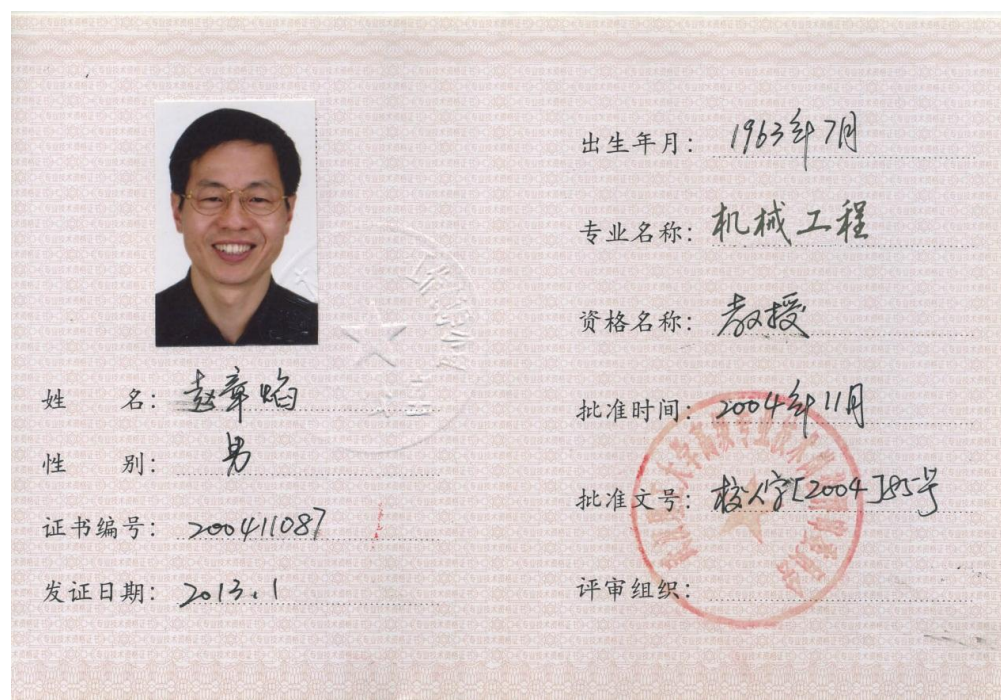 姓 名: 赵章焰
性 别: 男
证书编号: 200411087
发证日期: 2013.1
出生年月: 1963年7月
专业名称: 机械工程
资格名称: 教授
批准时间: 2004年11月
批准文号: 校人字[2004]85号
评审组织: